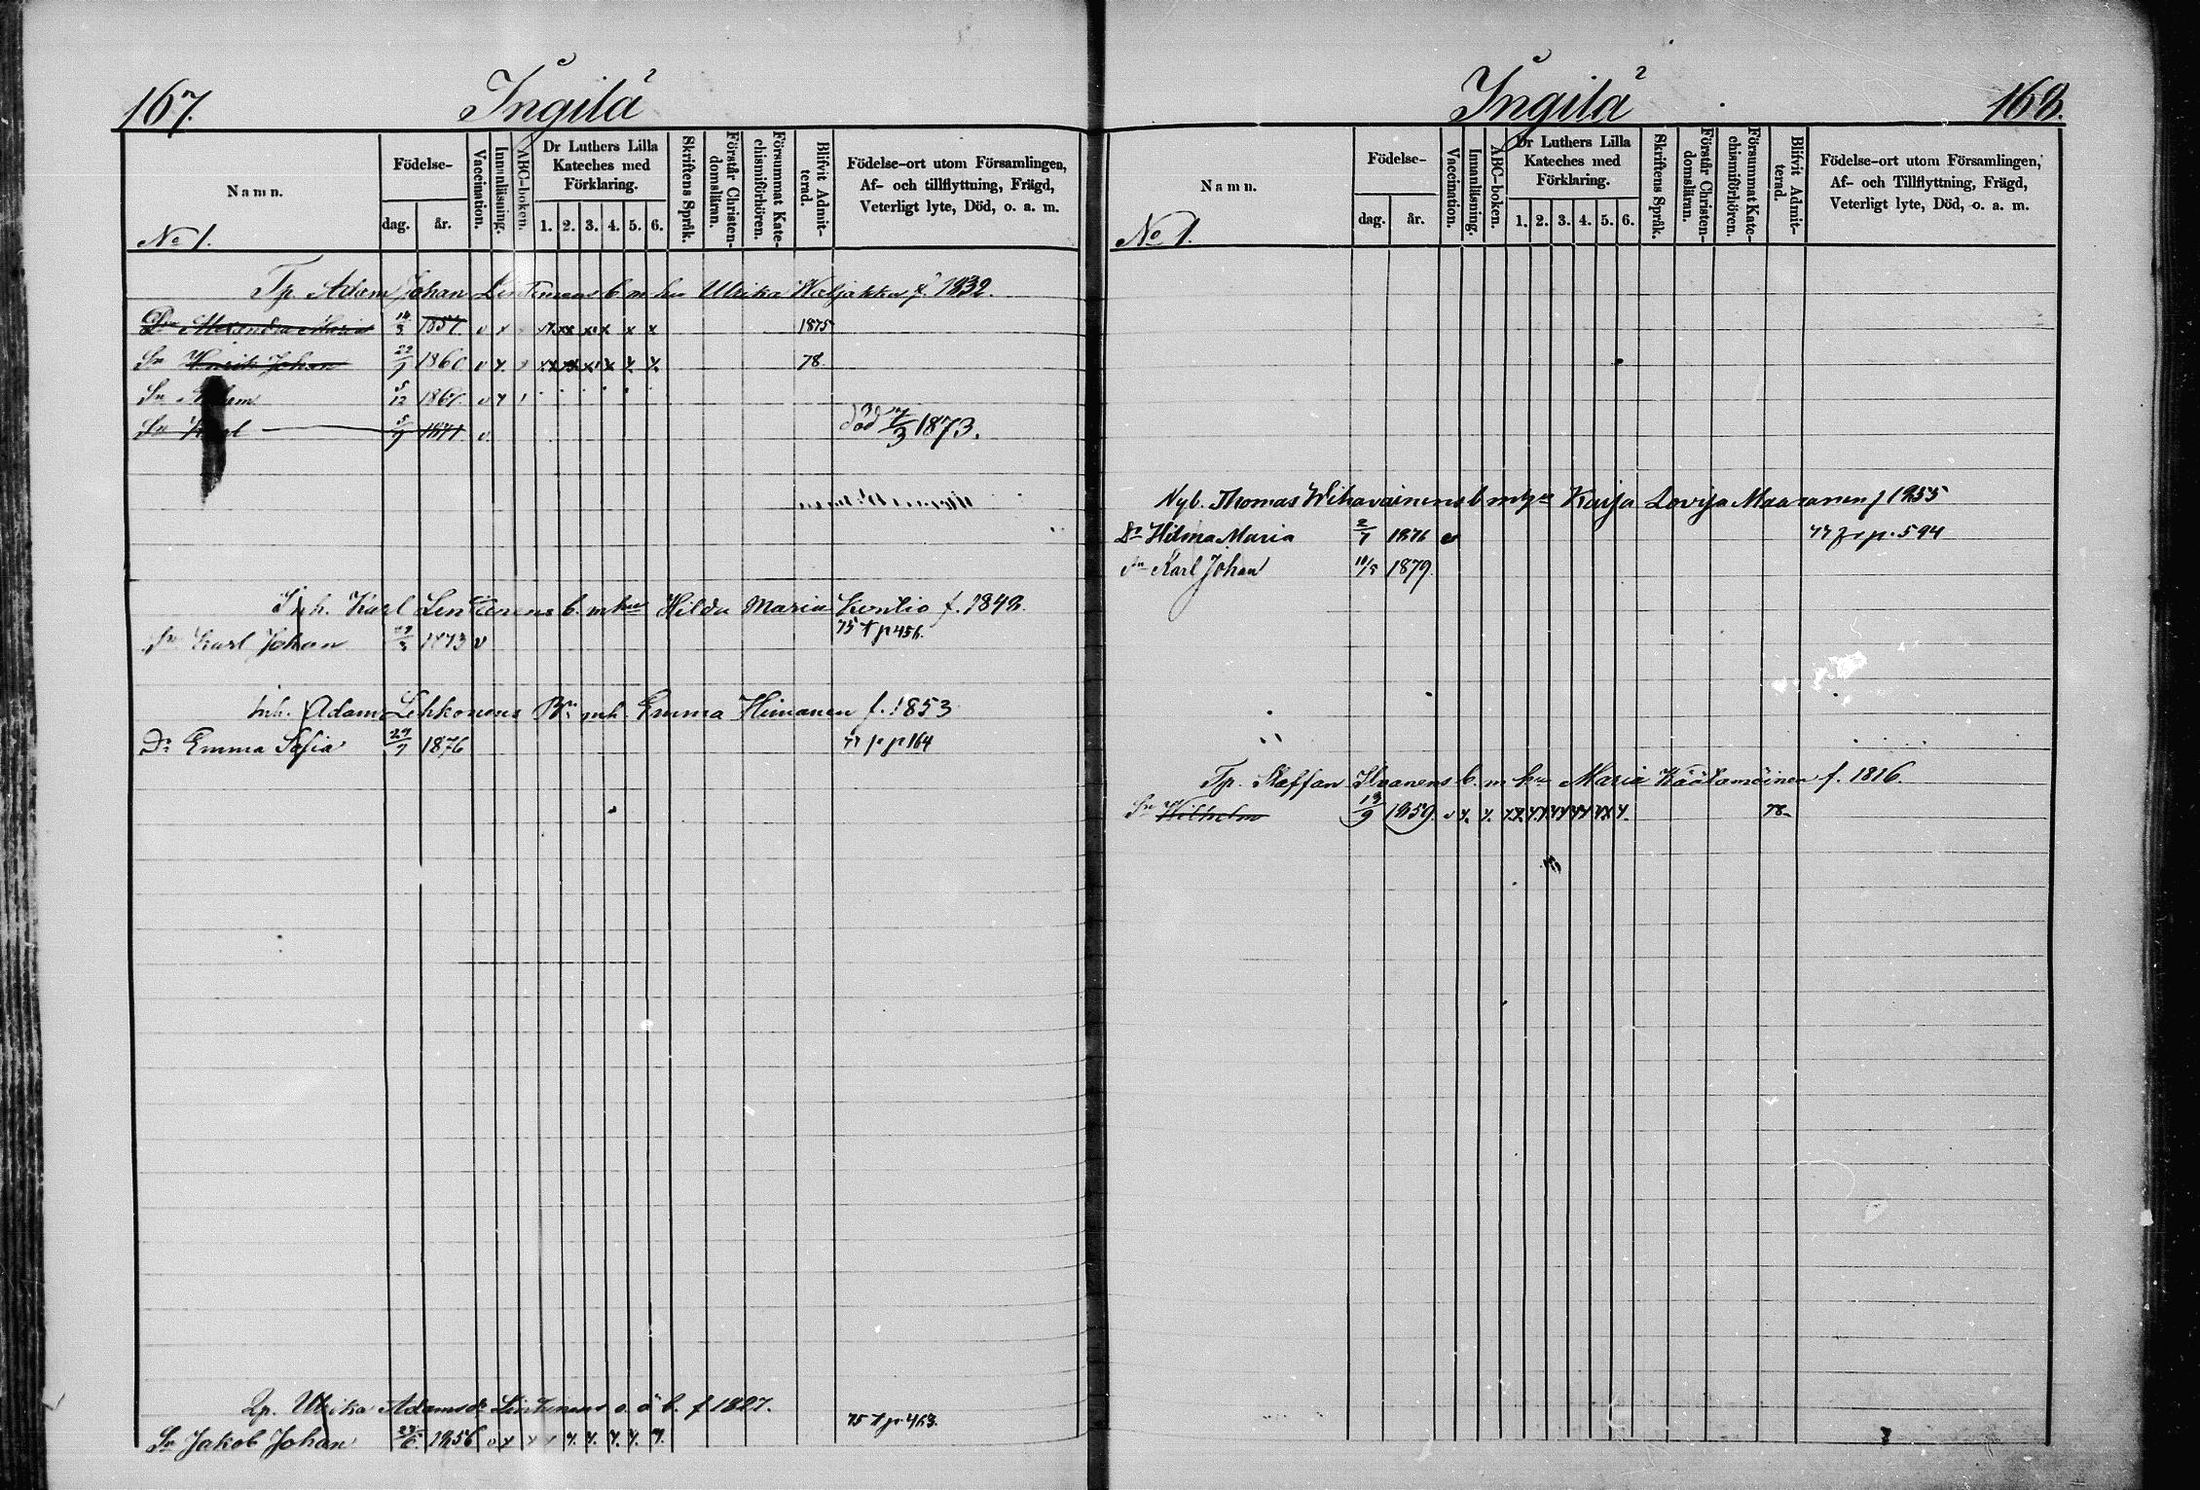 167.
Ingilä
Namn.
Födelse-
dag.
år.
Vaccination.
Innanläsning.
ABC-boken.
Dr Luthers Lilla Kateches med Förklaring.
1. 2. 3. 4. 5. 6.
Skriftens Språk.
Förstår Christendomsläran.
Försummat Katechismiförhören.
Blifvit Admitterad.
Födelse-ort utom Församlingen,
Af- och tillflyttning, Frägd,
Veterligt lyte, Död, o. a. m.
No 1.
Tp. Adam Johan Lintunens b. m. hu Ulrika Waljakka f. 1832.
Dr Alexandra Maria 1857 v x 1875
Sn Henrik Johan 22/7 1860 v x 78
Sn 5/12 1867 v x
Sn 5/9 1871 v död 1873.
Inh. Karl Lintunens b. m hu Hilda Maria Kontio f. 1842.
Sn Karl Johan 1873 v 75 t p 456.
Inh. Adam Lehkonens Bn mh. Emma Himanen f. 1853
Dr Emma Sofia 27/7 1876 77 p p 164
Lp. Ulrika Adamsdr Lintunens o. ä b. f 1827.
Sn Jakob Johan 1856 v x x x x. x. x. x. x. 75 t p 463.
168.
Ingilä
Namn.
Födelse-
dag.
år.
Vaccination.
Innanläsning.
ABC-boken.
Dr Luthers Lilla Kateches med Förklaring.
1. 2. 3. 4. 5. 6.
Skriftens Språk.
Förstår Christendomsläran.
Försummat Katechismiförhören.
Blifvit Admitterad.
Födelse-ort utom Församlingen,
Af- och Tillflyttning, Frägd,
Veterligt lyte, Död, o. a. m.
No 1.
Nyb. Thomas Wihavainens b m hu Kaisa Lovisa Maaranen f 1855
Dr Hilma Maria 2/7 1876 v 77 fr p. 594
Sn Karl Johan 10/5 1879.
Tp. Staffan Ihanens b. m hu Maria Käätamöinen f. 1816.
Sn Wilhelm 13/9 1859. v x. x. 78